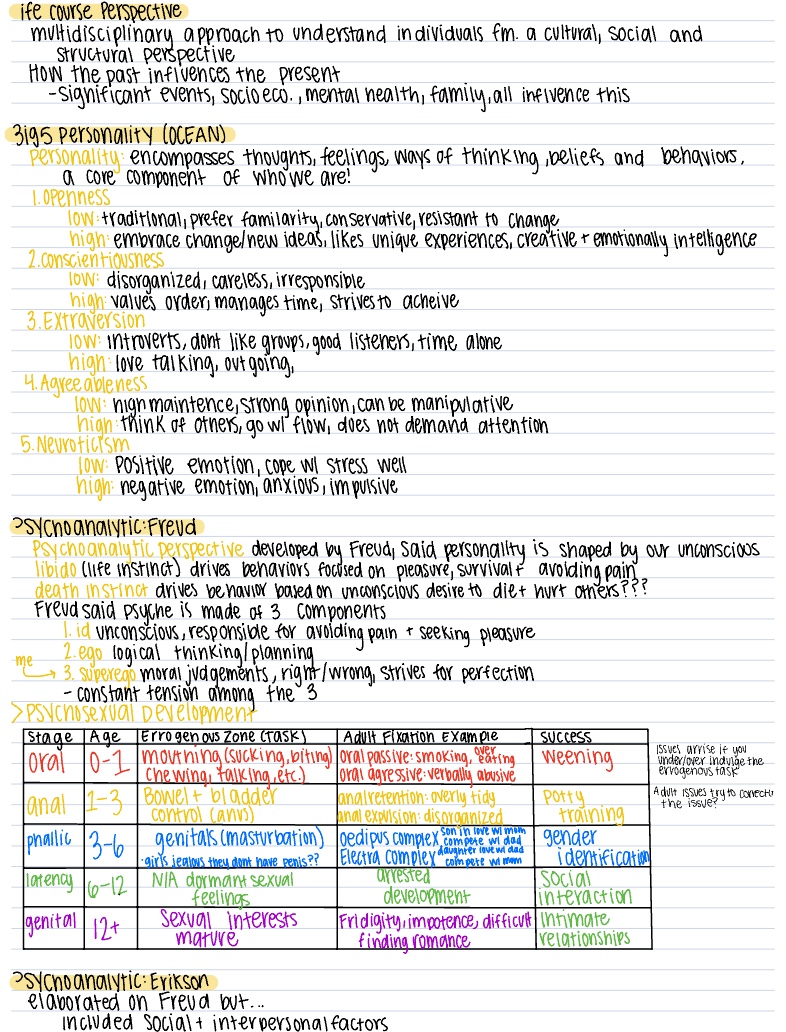 ife course Perspective
multidisciplinary approach to understand individuals fm. a cultural, social and
structural perspective
How the past influences the present
-Significant events, socioeco., mental health, family, all influence this
3ig5 Personality (OCEAN)
Personality: encompasses thoughts, feelings, ways of thinking, beliefs and behaviors,
a core component of who we are!
1. Openness
low: traditional, prefer familarity, conservative, resistant to change
high: embrace change/new ideas, likes unique experiences, creative + emotionally intelligence
2. conscientiousness
low: disorganized, careless, irresponsible
high: values order, manages time, strives to acheive
3. Extraversion
low: introverts, dont like groups, good listeners, time alone
high: love talking, outgoing,
4. Agreeableness
low: high maintence, strong opinion, can be manipulative
high: think of others, go w/ flow, does not demand attention
5. Neuroticism
low: positive emotion, cope w/ stress well
high: negative emotion, anxious, impulsive
Psychoanalytic: Freud
Psychoanalytic perspective developed by Freud, Said personality is shaped by our unconscious
libido (life instinct) drives behaviors focused on pleasure, survival + avoiding pain
death instinct drives behavior based on unconscious desire to die + hurt others???
Freud said psyche is made of 3 components
1. id unconscious, responsible for avoiding pain + seeking pleasure
2. ego logical thinking/planning
me
3. superego moral judgements, right/wrong, strives for perfection
- constant tension among the 3
>Psychosexual Development
Stage Age Errogenous Zone (Task) Adult Fixation Example Success
oral 0-1 mouthing (sucking, biting) chewing, talking, etc.) oral passive: smoking, over eating oral agressive: verbally abusive weening
Issues arrise if you
under/over indulge the
errogenous task
anal 1-3 Bowel + bladder control (anus) anal retention: overly tidy anal expulsion: disorganized potty training
Adult issues try to correct
the issue?
phallic 3-6 genitals (masturbation) ·girls jealous they dont have penis?? Oedipus complex son in love w/ mom compete w/ dad Electra complex daughter love w/ dad compete w/ mom gender identification
latency 6-12 N/A dormant sexual feelings arrested development social interaction
genital 12+ Sexual interests mature Fridigity, impotence, difficult finding romance intimate relationships
Psychoanalytic: Erikson
elaborated on Freud but...
included social + interpersonal factors